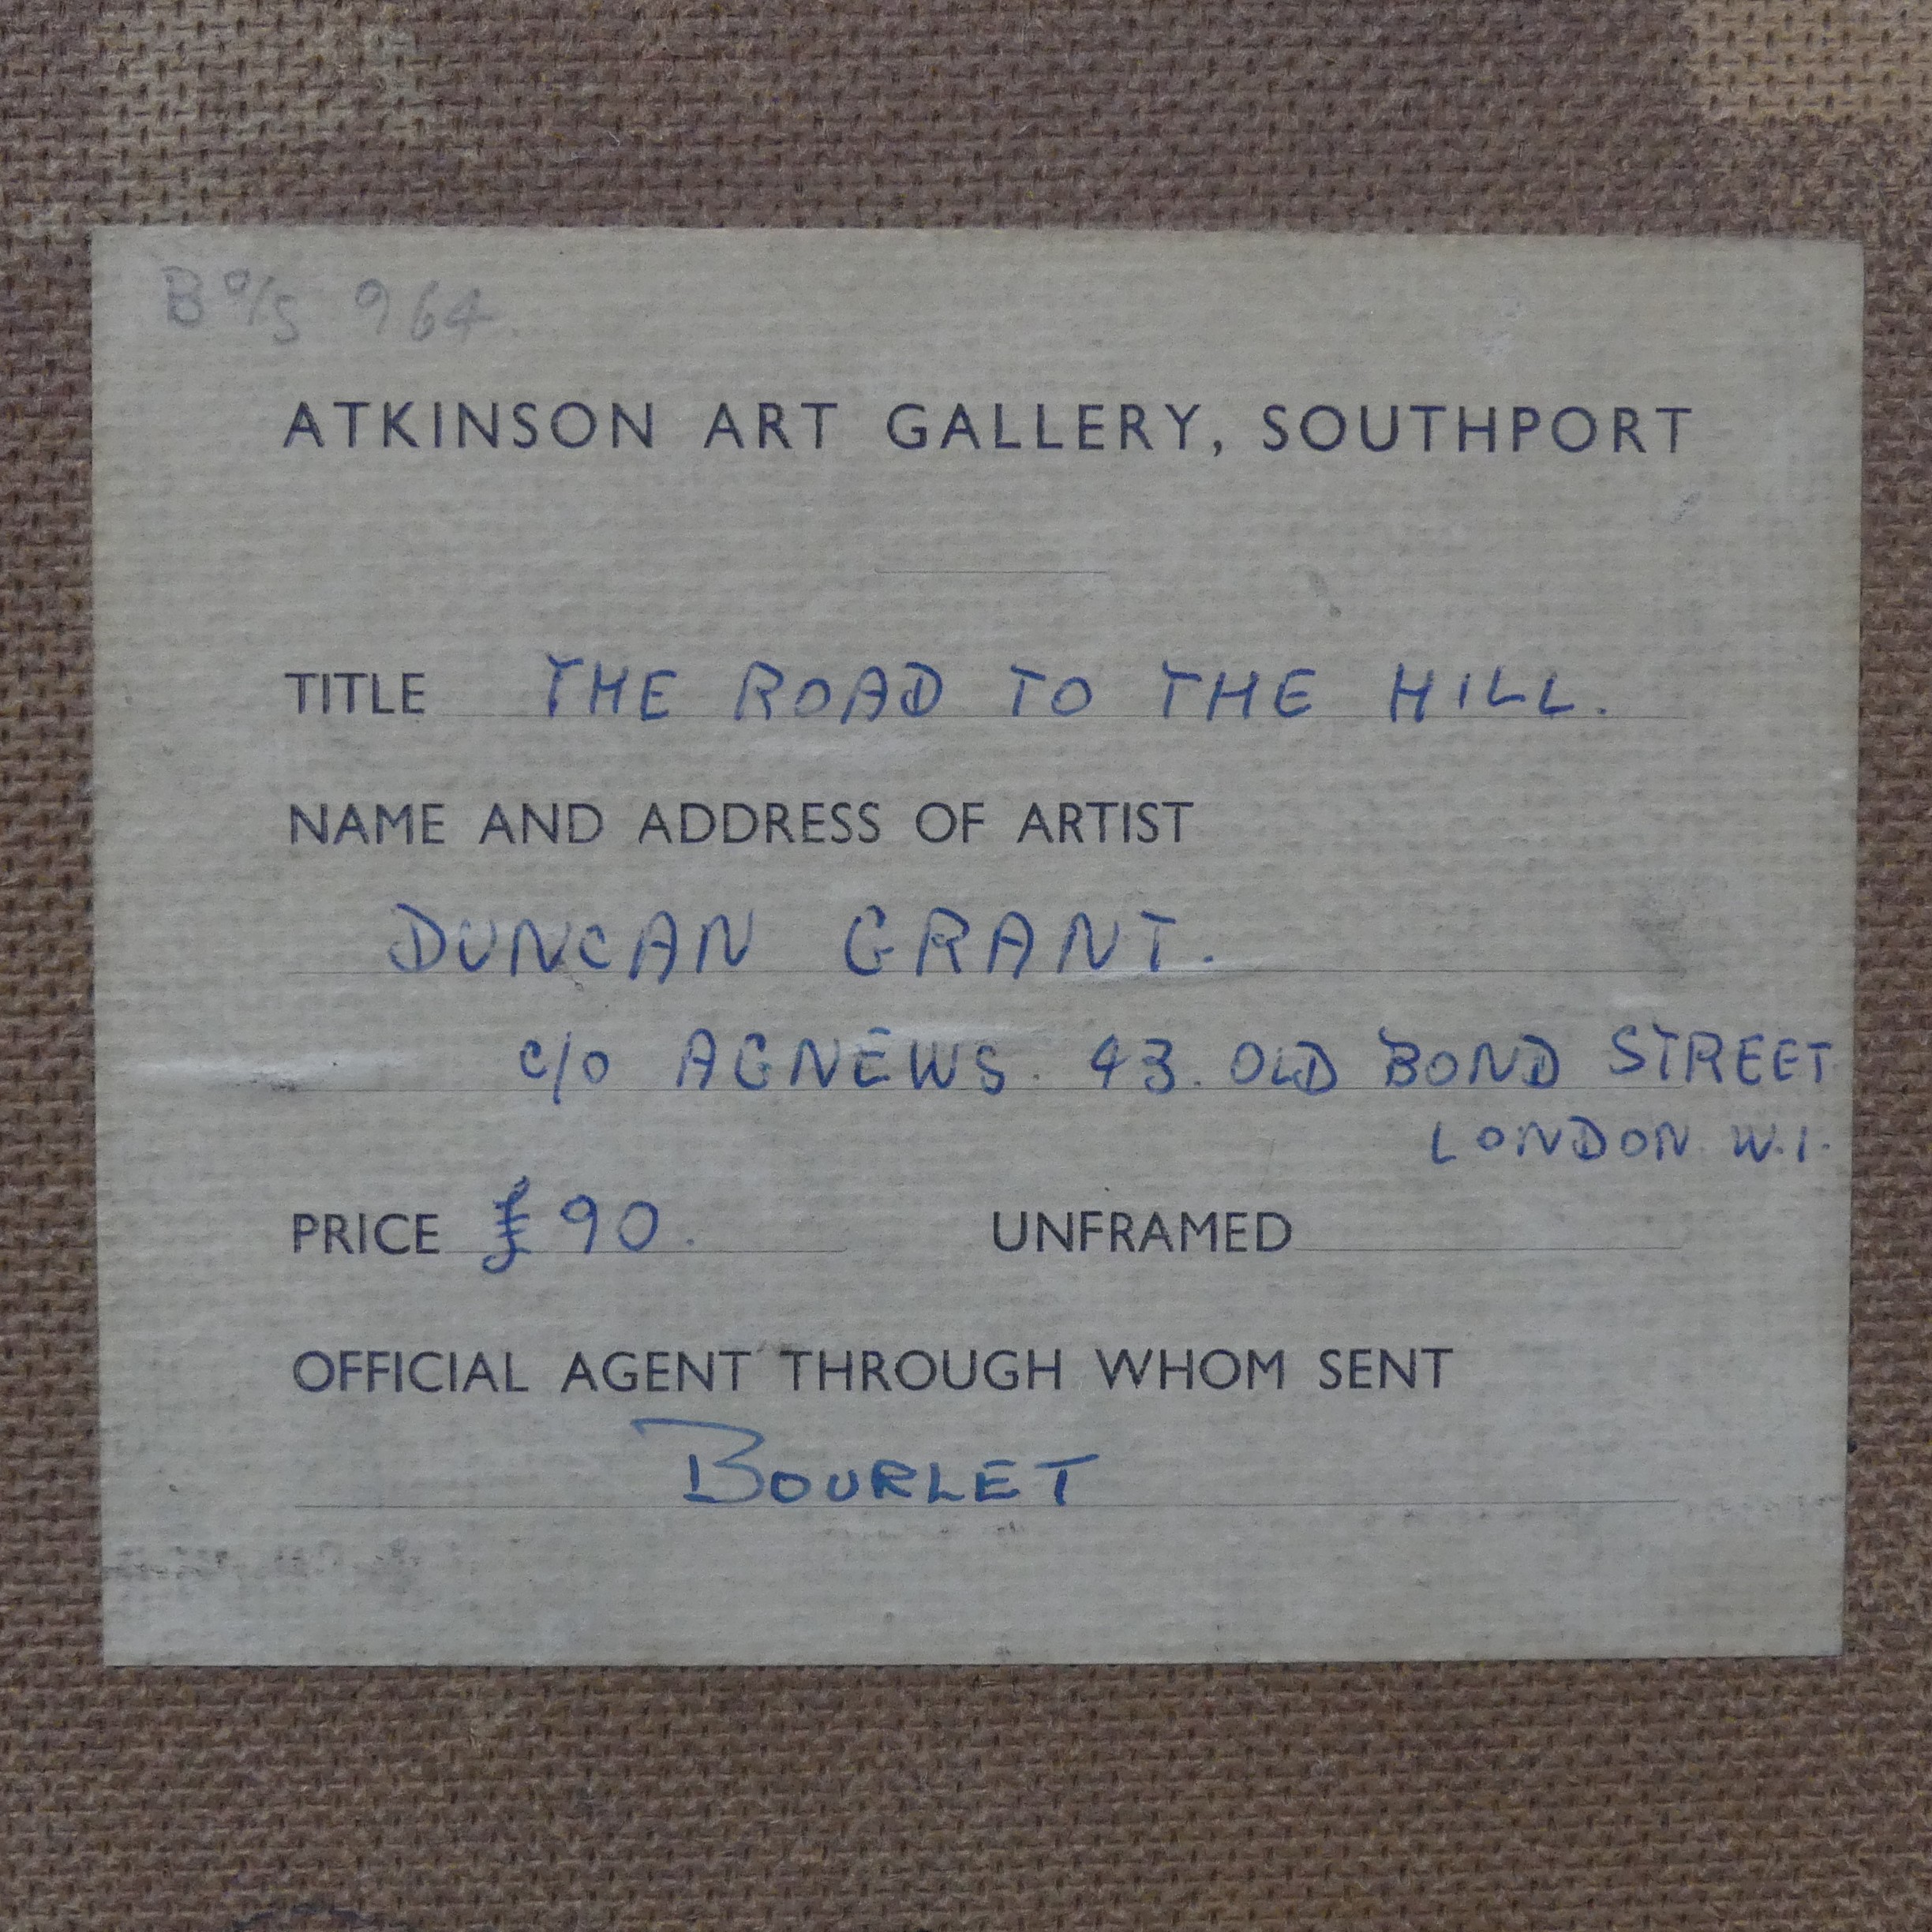 B o/s 964
ATKINSON ART GALLERY, SOUTHPORT
TITLE THE ROAD TO THE HILL.
NAME AND ADDRESS OF ARTIST
DUNCAN GRANT.
c/o AGNEWS. 43. OLD BOND STREET
LONDON. W.1.
PRICE £90. UNFRAMED
OFFICIAL AGENT THROUGH WHOM SENT
BOURLET